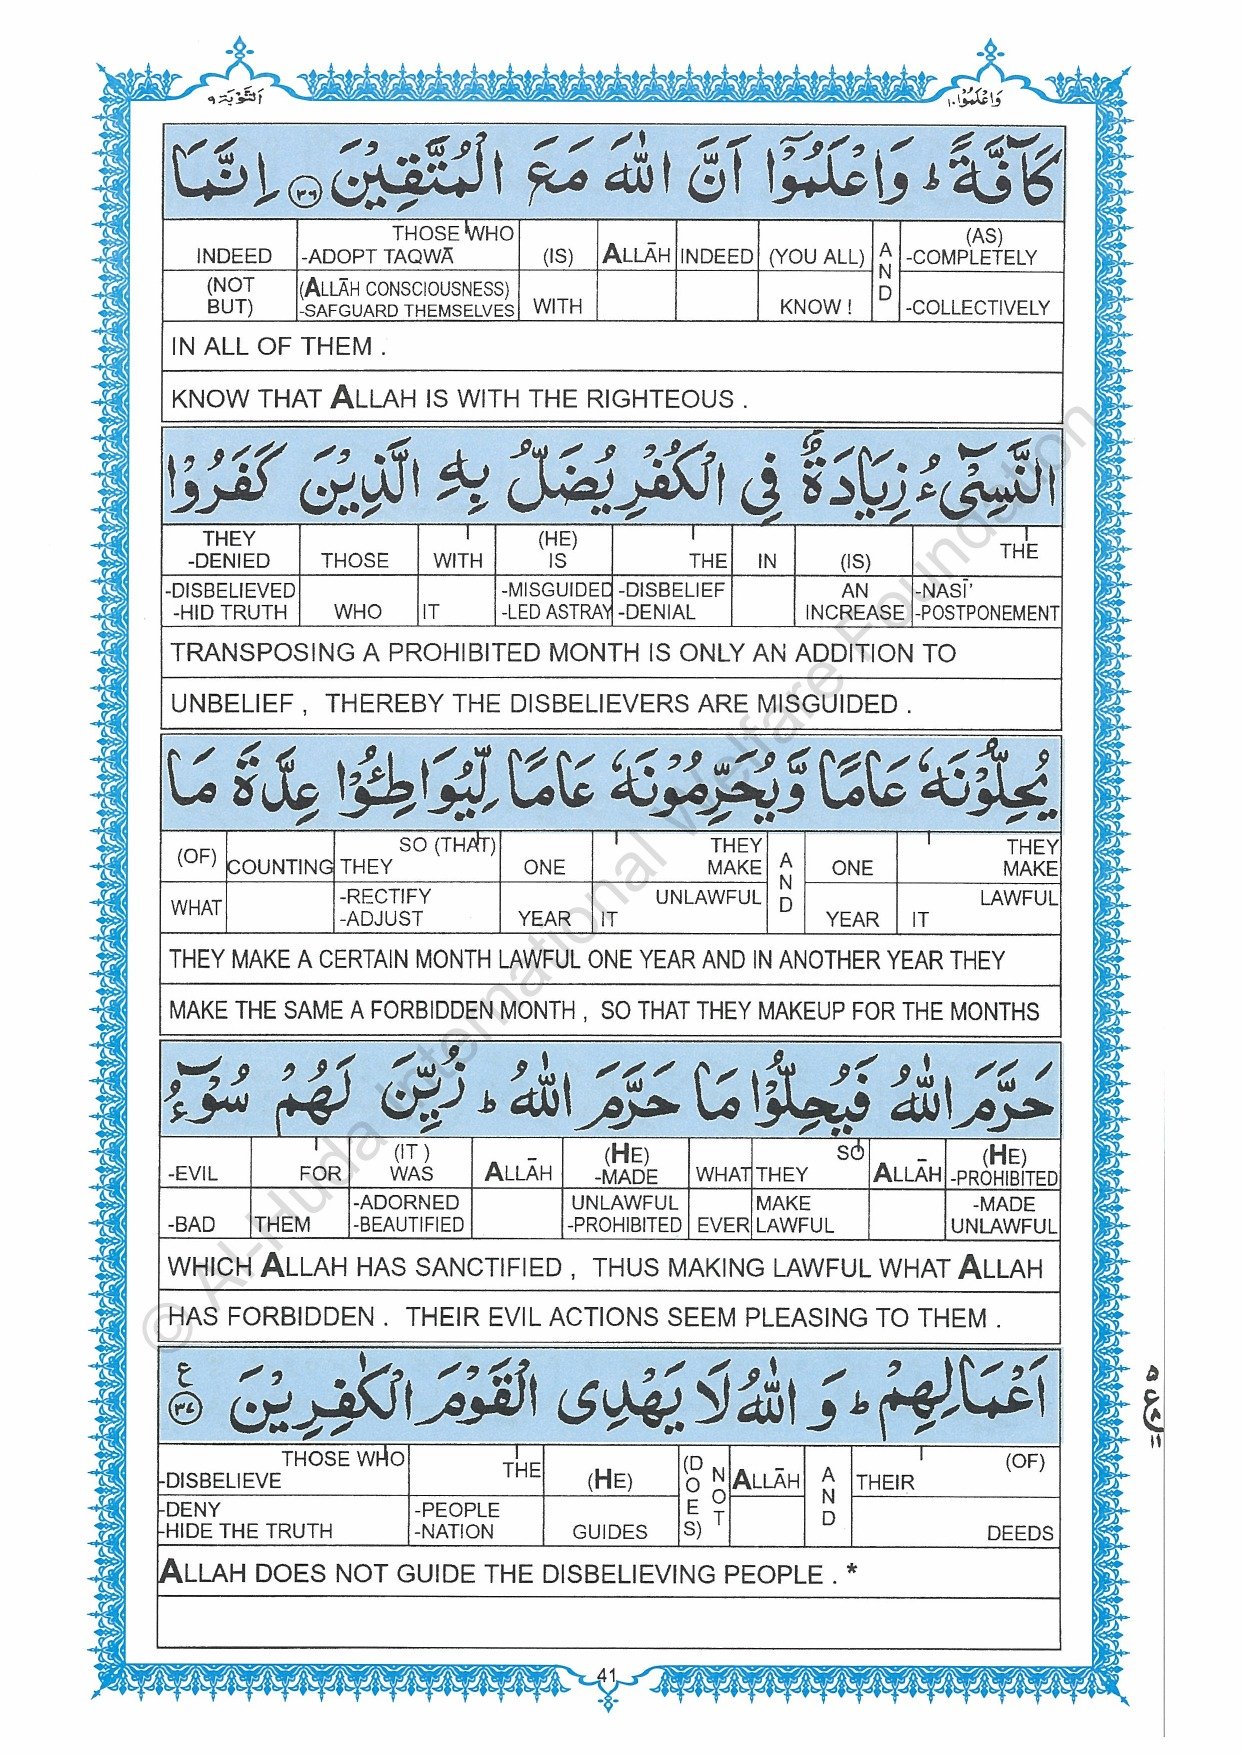 التوبة ٩
واعلموا ١٠
كَآفَّةً ؕ وَاعْلَمُوْۤا اَنَّ اللّٰهَ مَعَ الْمُتَّقِيْنَ ﴿۳۶﴾ اِنَّمَا
INDEED THOSE WHO -ADOPT TAQWĀ (IS) ALLĀH INDEED (YOU ALL) AND (AS) -COMPLETELY
(NOT BUT) (ALLĀH CONSCIOUSNESS) -SAFGUARD THEMSELVES WITH KNOW ! -COLLECTIVELY
IN ALL OF THEM .
KNOW THAT ALLAH IS WITH THE RIGHTEOUS .
النَّسِیْٓءُ زِيَادَةٌ فِی الْكُفْرِ يُضَلُّ بِهِ الَّذِيْنَ كَفَرُوْا
THEY -DENIED THOSE WITH (HE) IS THE IN (IS) THE
-DISBELIEVED -HID TRUTH WHO IT -MISGUIDED -LED ASTRAY -DISBELIEF -DENIAL AN INCREASE -NASĪ’ -POSTPONEMENT
TRANSPOSING A PROHIBITED MONTH IS ONLY AN ADDITION TO
UNBELIEF , THEREBY THE DISBELIEVERS ARE MISGUIDED .
يُحِلُّوْنَهٗ عَامًا وَّيُحَرِّمُوْنَهٗ عَامًا لِّيُوَاطِـُٔوْا عِدَّةَ مَا
(OF) COUNTING SO (THAT) THEY ONE THEY MAKE AND ONE THEY MAKE
WHAT -RECTIFY -ADJUST YEAR IT UNLAWFUL YEAR IT LAWFUL
THEY MAKE A CERTAIN MONTH LAWFUL ONE YEAR AND IN ANOTHER YEAR THEY
MAKE THE SAME A FORBIDDEN MONTH , SO THAT THEY MAKEUP FOR THE MONTHS
حَرَّمَ اللّٰهُ فَيُحِلُّوْا مَا حَرَّمَ اللّٰهُ ؕ زُيِّنَ لَهُمْ سُوْٓءُ
-EVIL FOR (IT ) WAS ALLĀH (HE) -MADE WHAT THEY SO ALLĀH (HE) -PROHIBITED
-BAD THEM -ADORNED -BEAUTIFIED UNLAWFUL -PROHIBITED EVER MAKE LAWFUL -MADE UNLAWFUL
WHICH ALLAH HAS SANCTIFIED , THUS MAKING LAWFUL WHAT ALLAH
HAS FORBIDDEN . THEIR EVIL ACTIONS SEEM PLEASING TO THEM .
اَعْمَالِهِمْ ؕ وَ اللّٰهُ لَا يَهْدِی الْقَوْمَ الْكٰفِرِيْنَ ﴿۳۷﴾ ع
THOSE WHO -DISBELIEVE THE (HE) (DOES) NOT ALLĀH AND THEIR (OF)
-DENY -HIDE THE TRUTH -PEOPLE -NATION GUIDES DEEDS
ALLAH DOES NOT GUIDE THE DISBELIEVING PEOPLE . *
41
© Al-Huda International Welfare Foundation